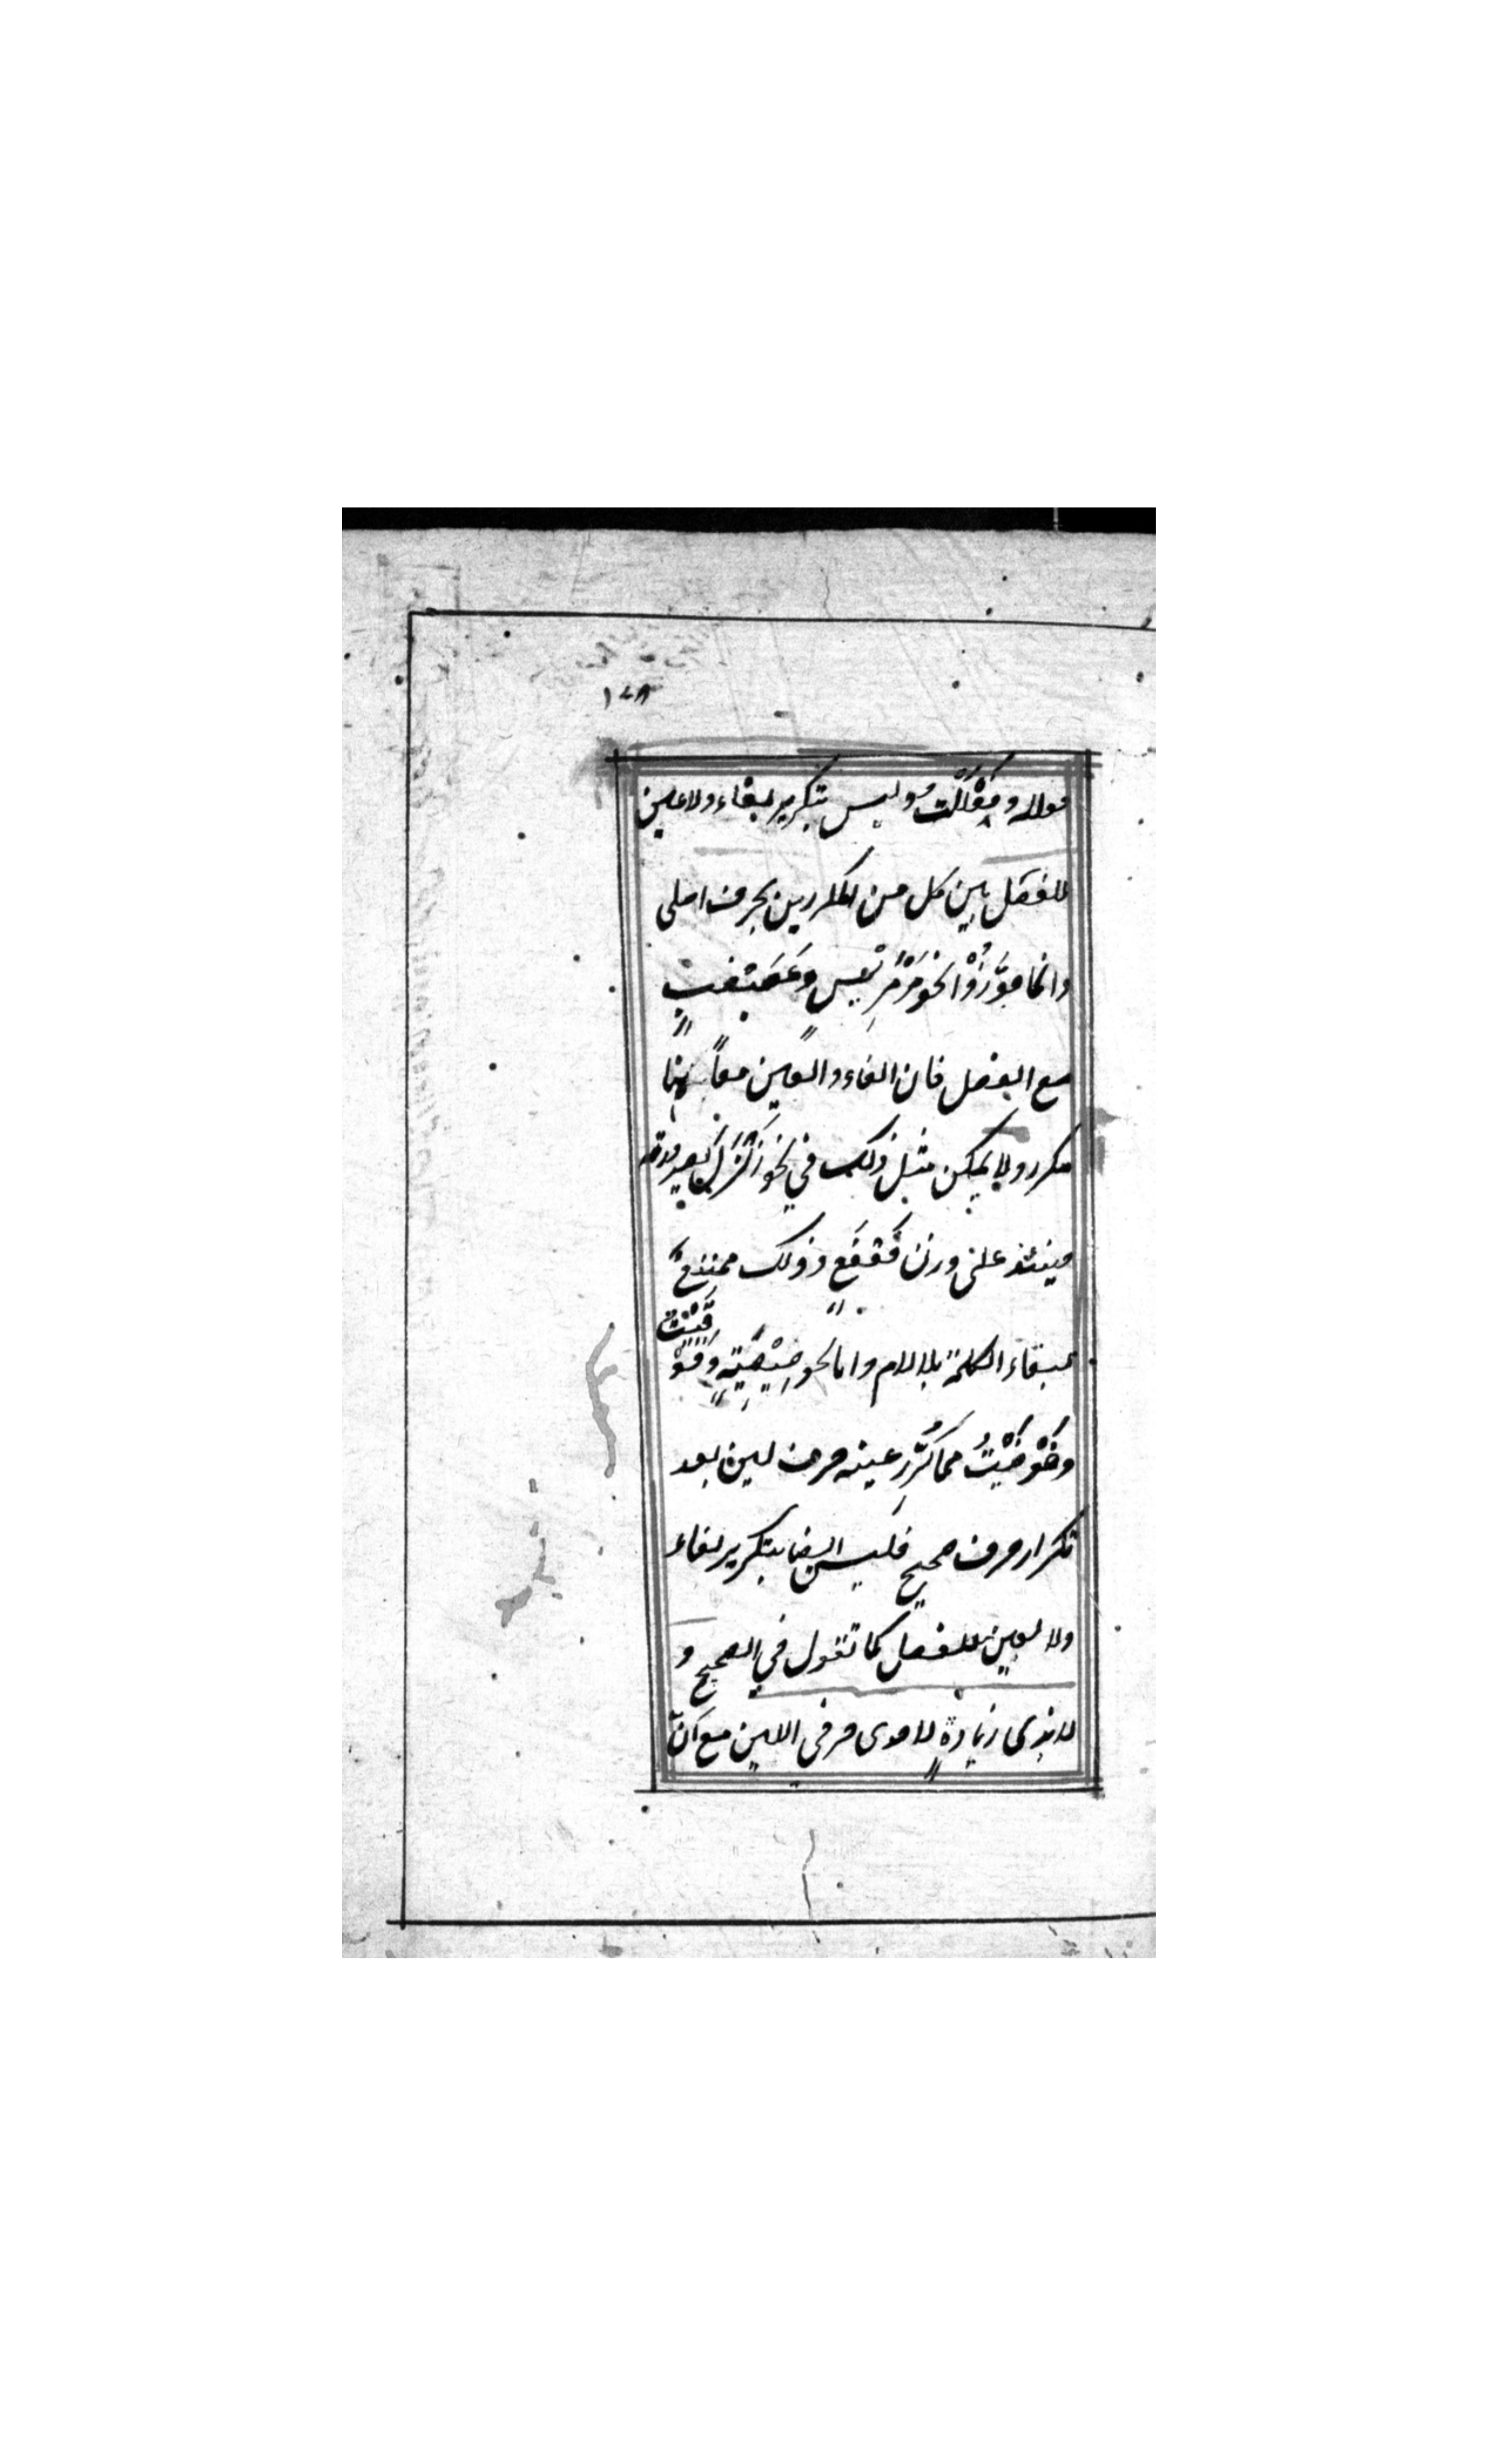 ١٤٨
قوله و وليس بتكرير لفاء ولا عين
للفصل بين كل من المكررين بحرف اصلي
وانما جَوَّزُوْا نحو مَرْمَرِيْس وعَصَبْصَبٍ
مع الفصل فان الفاء والعين معاً هنا
مكرر ولا يمكن مثل ذلك في نحو زَلْزَلَ لصيرورته
حينئذ على وزن فَعْفَعٍ وذلك ممتنع
لبقاء الكلمة بلا لام واما نحو صِيْصِيَةٍ وقَوْ
قَيْتُ
وضَوْضَيْتُ مما كُرِّرَ عينه حرف لين بعد
تكرار حرف صحيح فليس ايضا بتكرير لفاء
ولا لعين للفصل كما تقول في الصحيح و
لا بذى زيادةٍ لاحدى حرفي اللين مع انّ